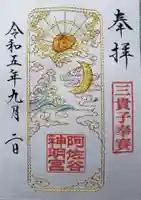 奉拝
三貴子奉賽
阿佐ヶ谷
神明宮
令和五年九月二日